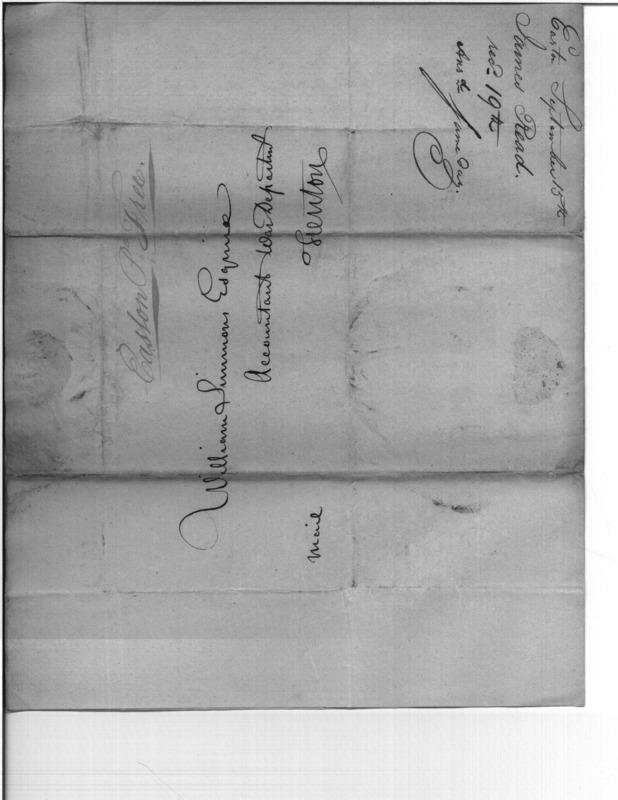 Easton Pa. Free.
William Simmons Esquire
Accountant War Department
Trenton
Mail
September 15th
James Read.
recd. 19th
Ansd. Same day.